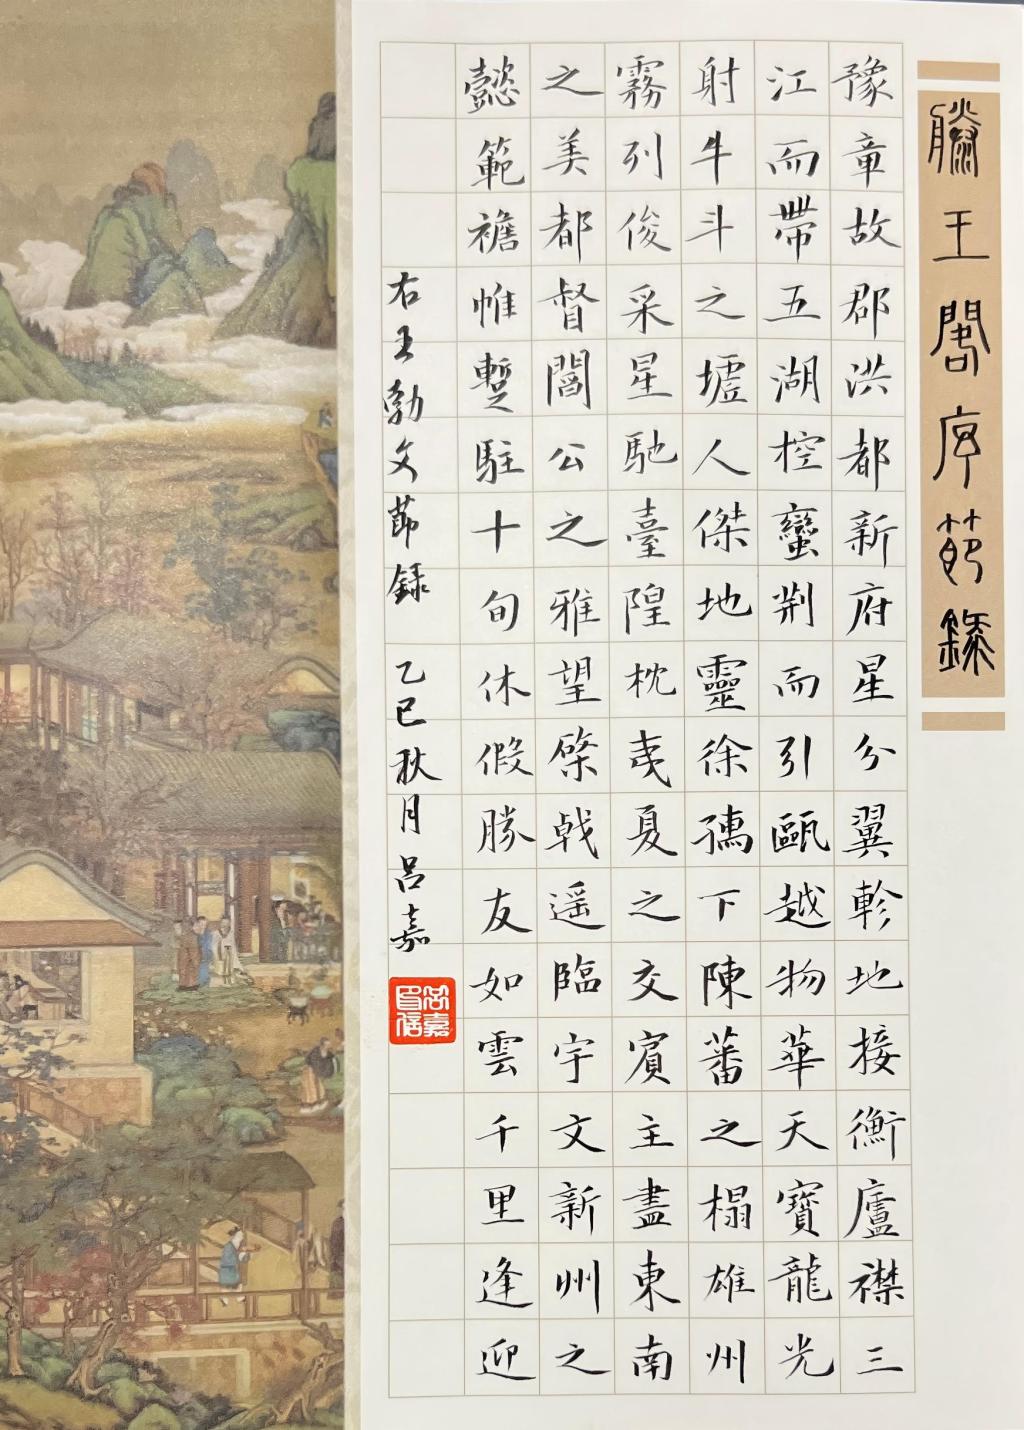 滕王閣序節錄
豫章故郡洪都新府星分翼軫地接衡廬襟三
江而帶五湖控蠻荆而引甌越物華天寶龍光
射牛斗之墟人傑地靈徐孺下陳蕃之榻雄州
霧列俊采星馳臺隍枕夷夏之交賓主盡東南
之美都督閻公之雅望棨戟遥臨宇文新州之
懿範襜帷暫駐十旬休假勝友如雲千里逢迎
右王勃文節録 乙巳秋月吕嘉
吕嘉
印信